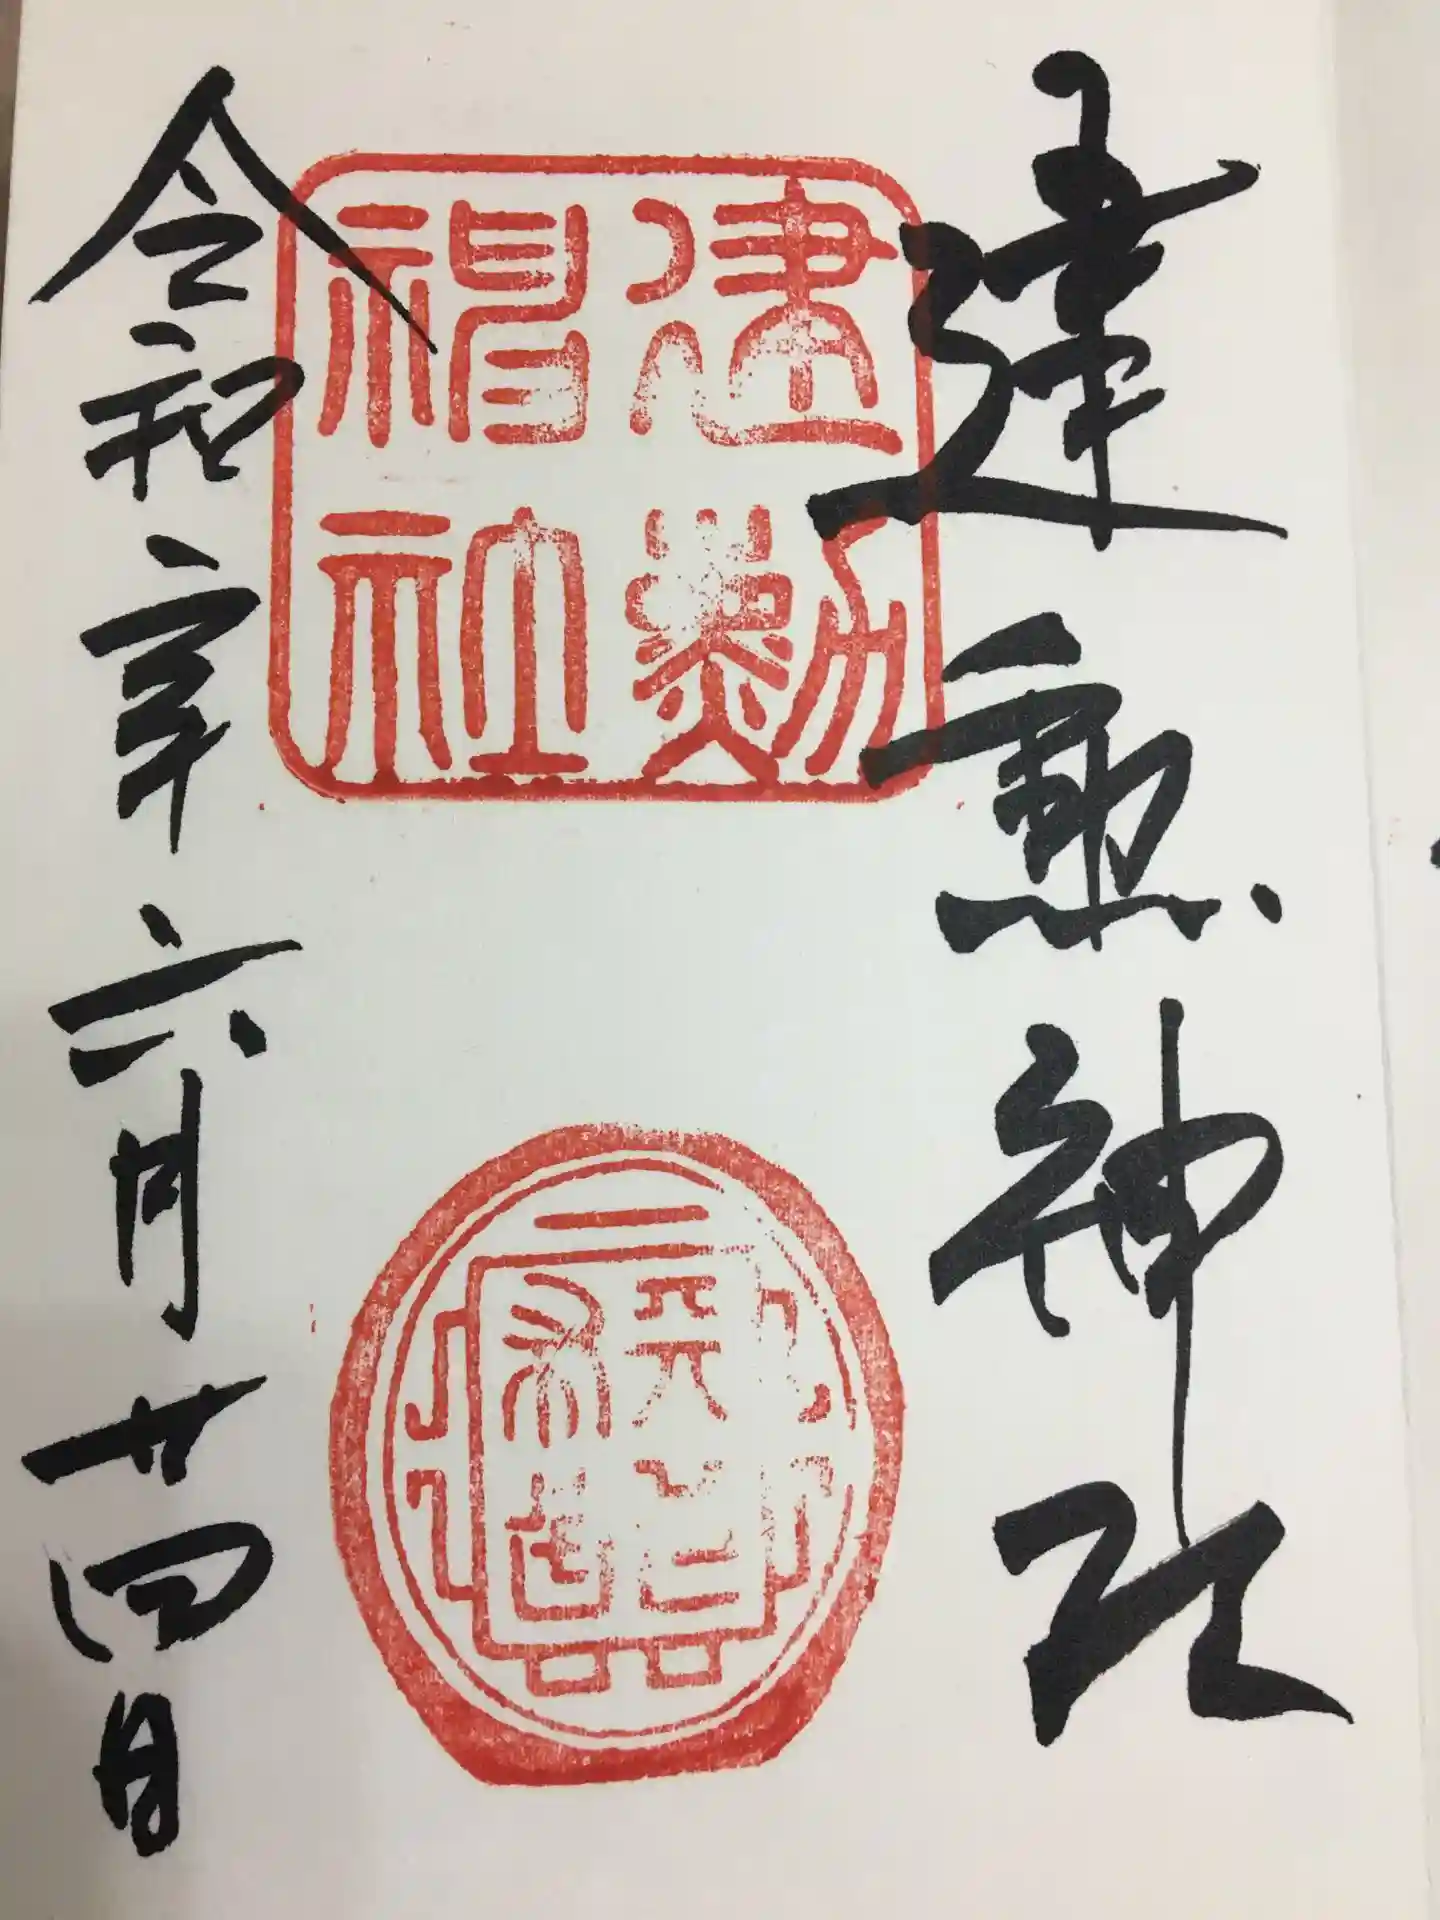 建勲神社
建勲神社
令和年六月廿四日